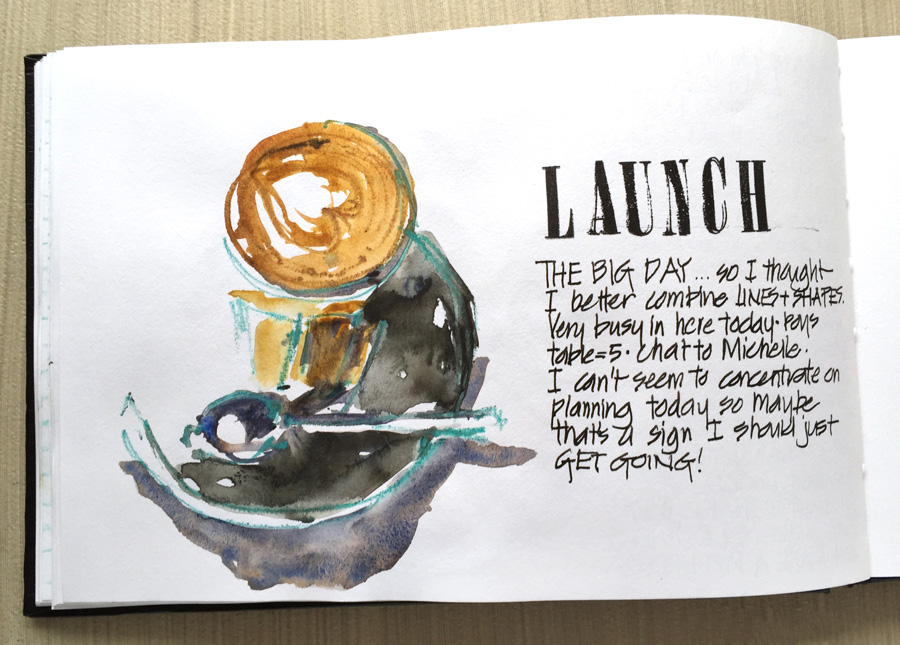 LAUNCH
THE BIG DAY... so I thought
I better combine LINES + SHAPES.
Very busy in here today. Boys
table=5. Chat to Michelle.
I can't seem to concentrate on
planning today so maybe
that's a sign I should just
GET GOING!